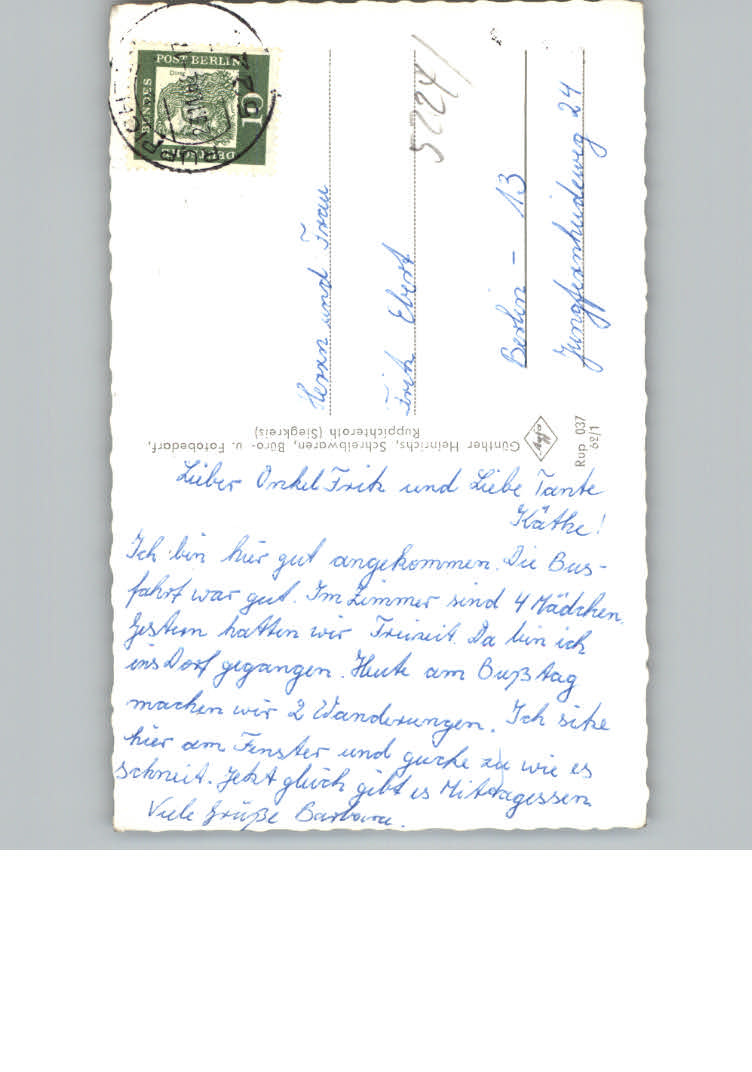 Lieber Onkel Fritz und Liebe Tante
Käthe!
Ich bin hier gut angekommen. Die Bus-
fahrt war gut. Im Zimmer sind 4 Mädchen.
Gestern hatten wir Freizeit. Da bin ich
ins Dorf gegangen. Heute am Bußtag
machen wir 2 Wanderungen. Ich sitze
hier am Fenster und gucke zu wie es
schneit. Jetzt gleich gibt es Mittagessen.
Viele Grüße Barbara.
Herrn und Frau
Fritz Ebert
Berlin - 13
Jungfernheideweg 24
5224/
Günther Heinrichs, Schreibwaren, Büro- u. Fotobedarf,
Ruppichteroth (Siegkreis)
Agfa
Rup 037
62/1
DEUTSCHE BUNDESPOST BERLIN
Dürer
10